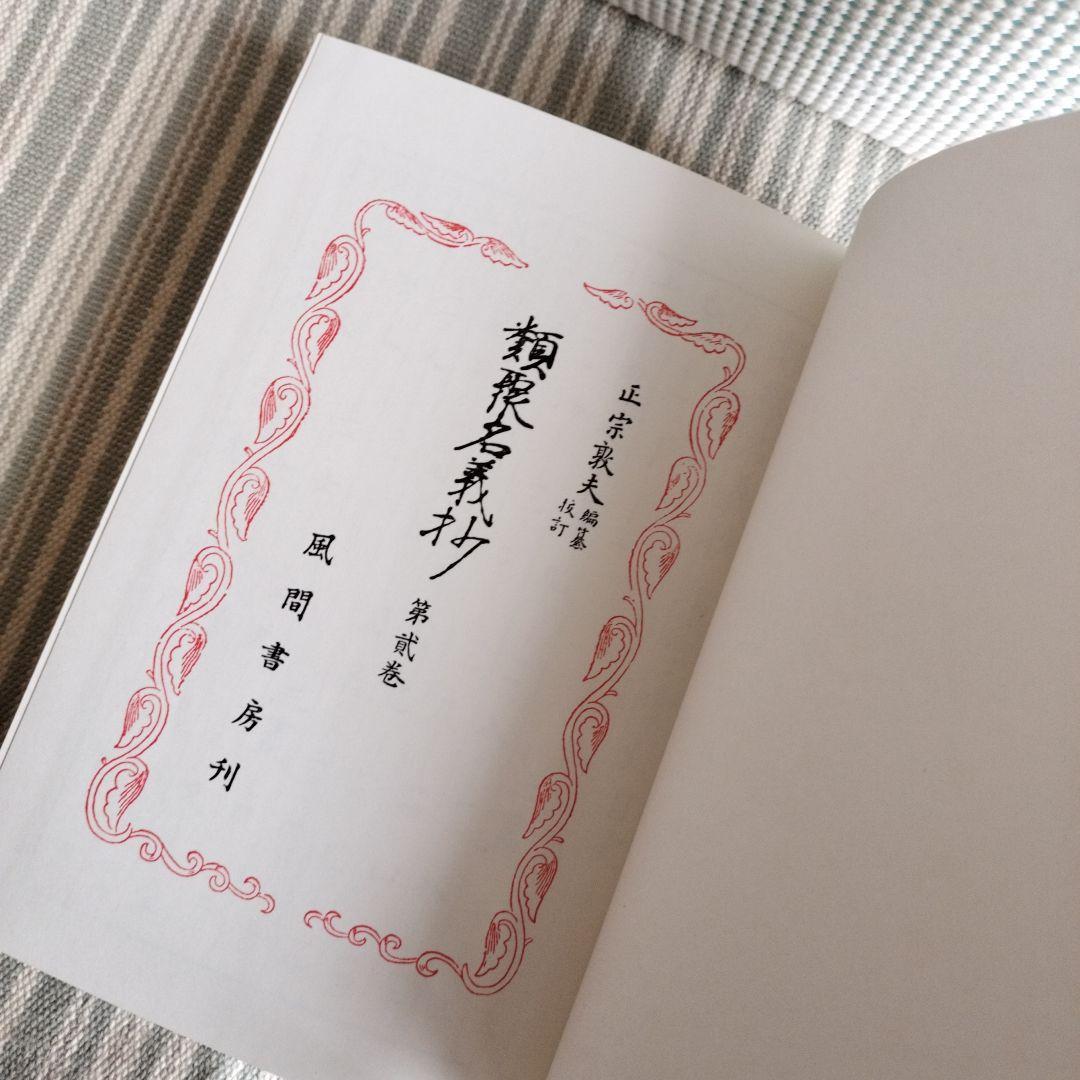 正宗敦夫 編纂校訂
類聚名義抄 第貳卷
風間書房刊